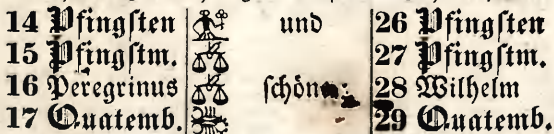 14 Pfingſten und 26 Pfingſten
15 Pfingſtm. 27 Pfingſtm.
16 Peregrinus ſchön. 28 Wilhelm
17 Quatemb. 29 Quatemb.